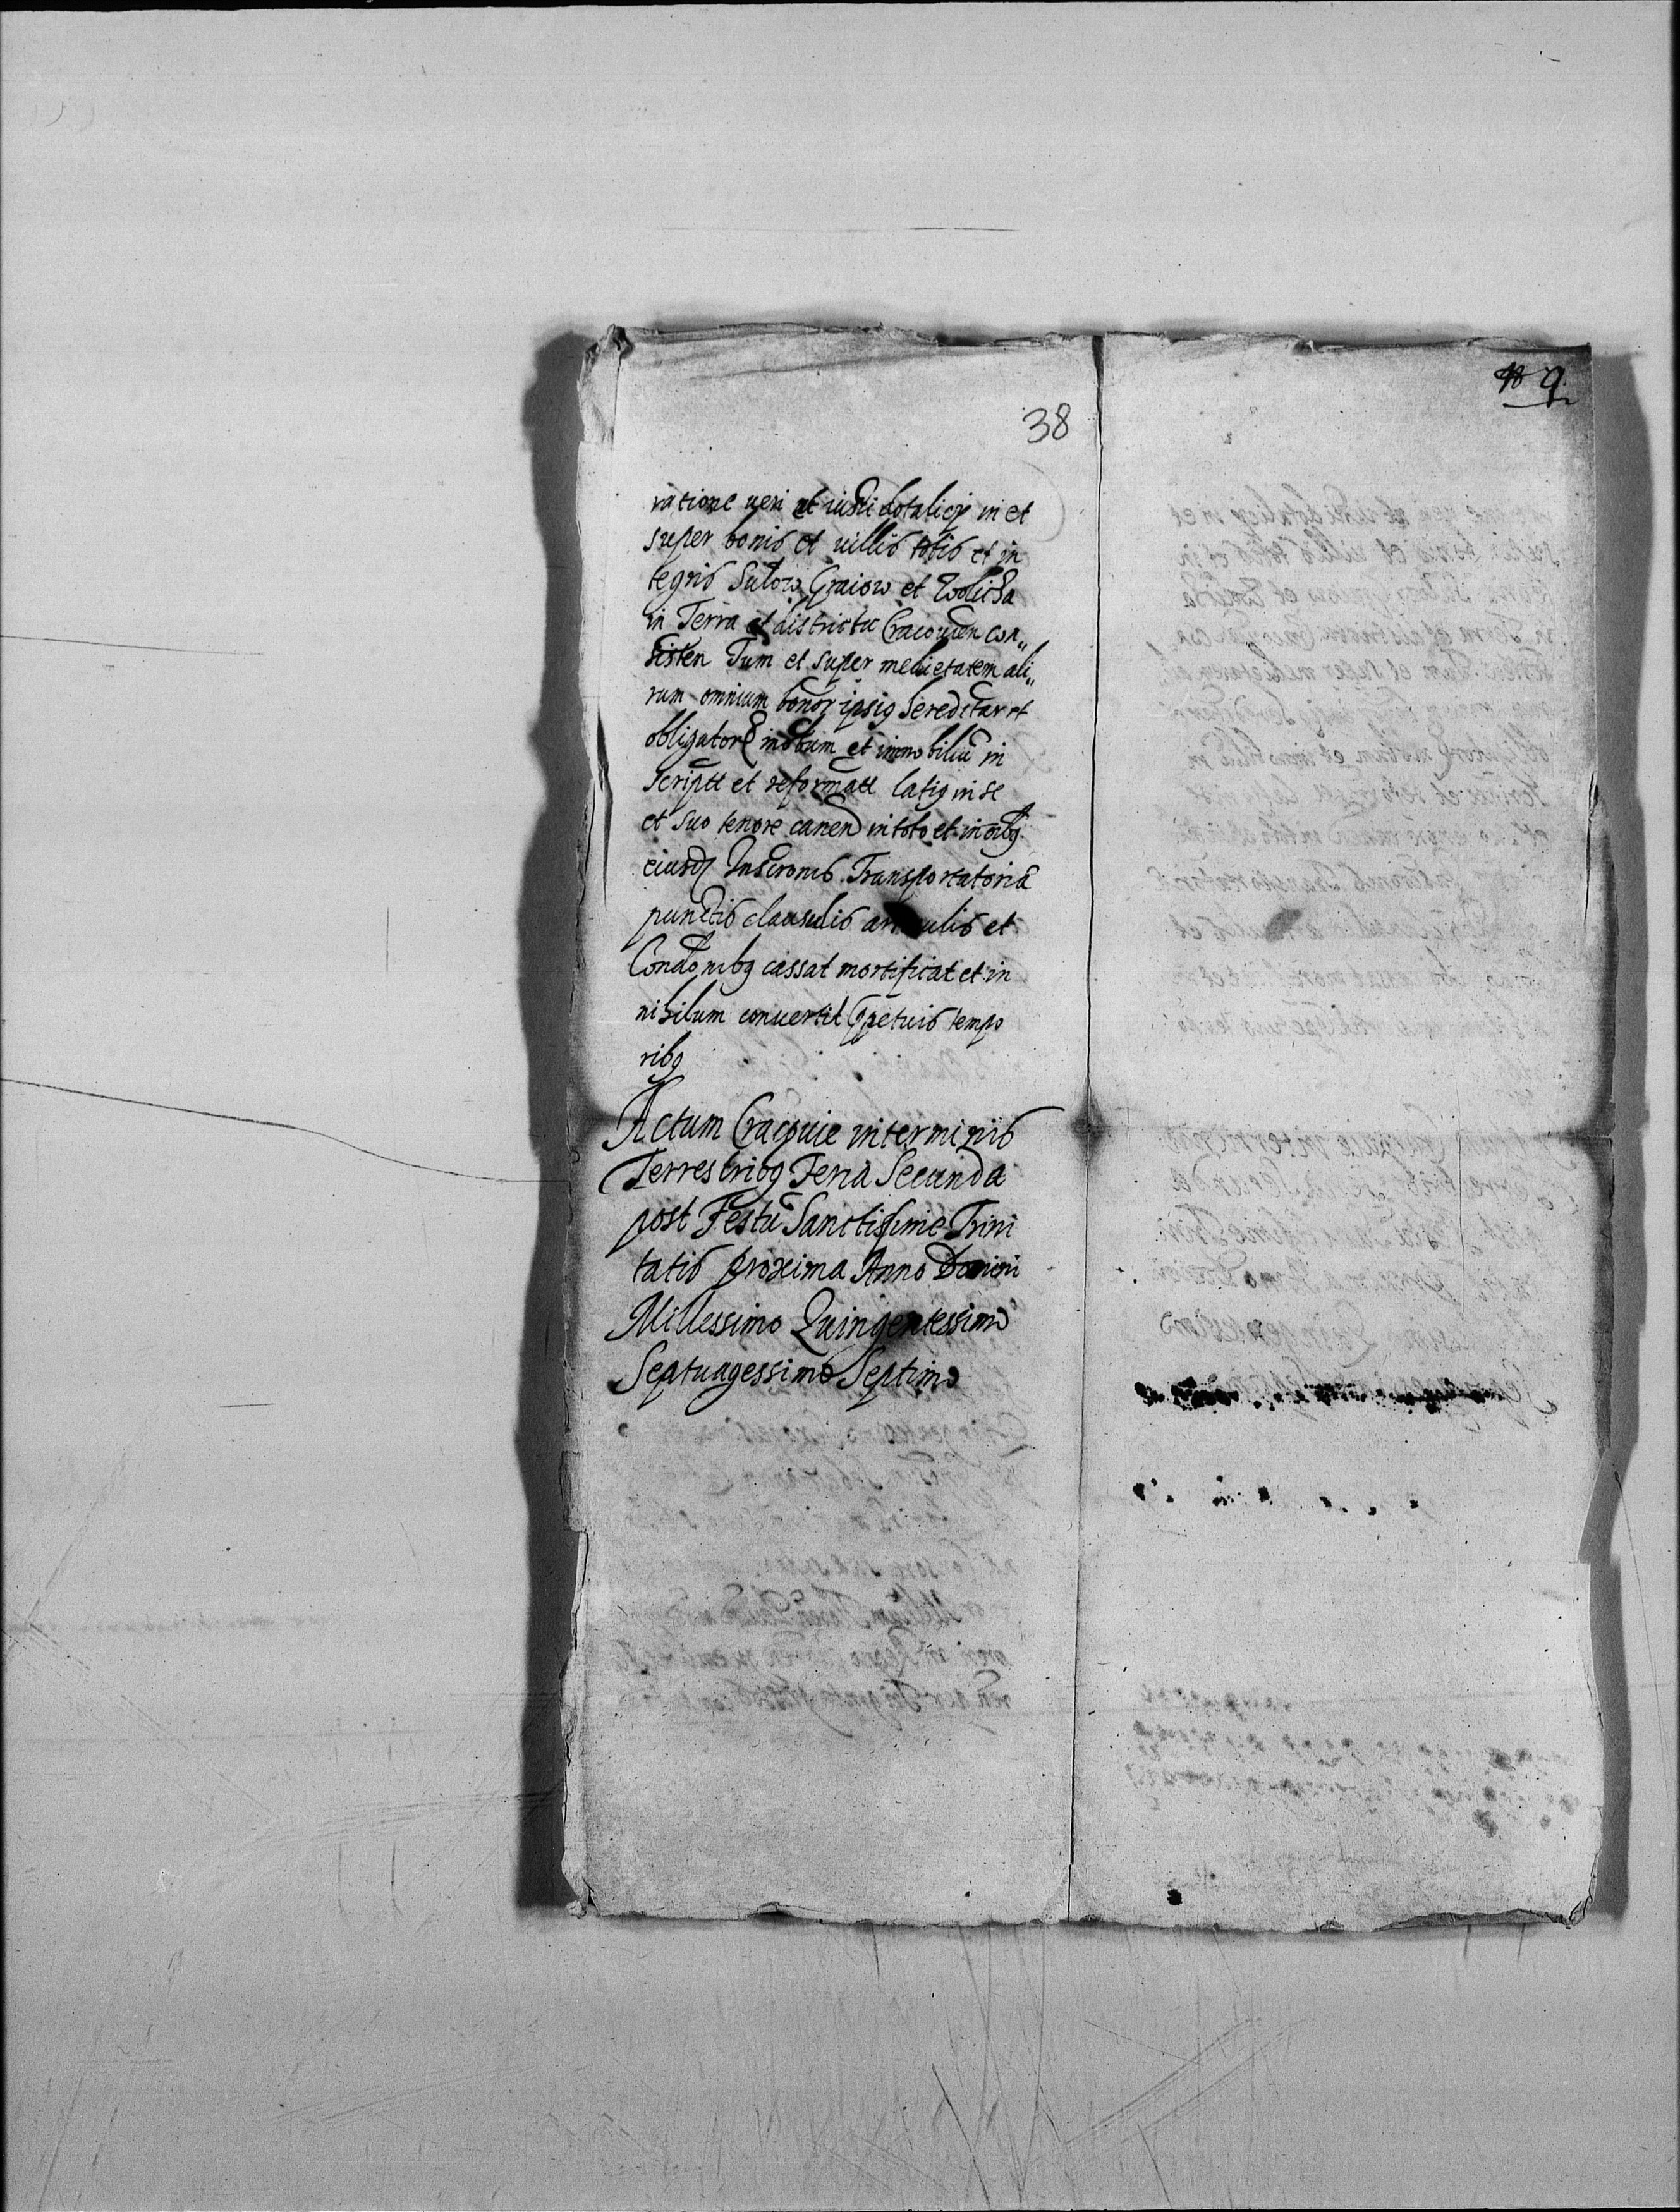 38
9.
ratione veri et iusti dotalicij in et
super bonis et villis totis et in
tegris Sulow Graiow et Wolicza
in Terra et districtu Cracouien con„
sisten Tum et super medietatem ali„
rum omnium bonor ipsiq hereditar et
obligator mobilium et immobiliū in
script et reformat latiq in se
et suo tenore canen in toto et in oībq
eiusd Inscronis Transportatoria
punctis clausulis articulis et
Condonibq cassat mortificat et in
nihilum conuertit ppetuis tempo
ribq
Actum Cracouie in terminis
Terrestribq Feria Secunda
post Festū Sanctissime Trini
tatis proxima Anno Domini
Millessimo Quingentessimo
Septuagessimo Septimo